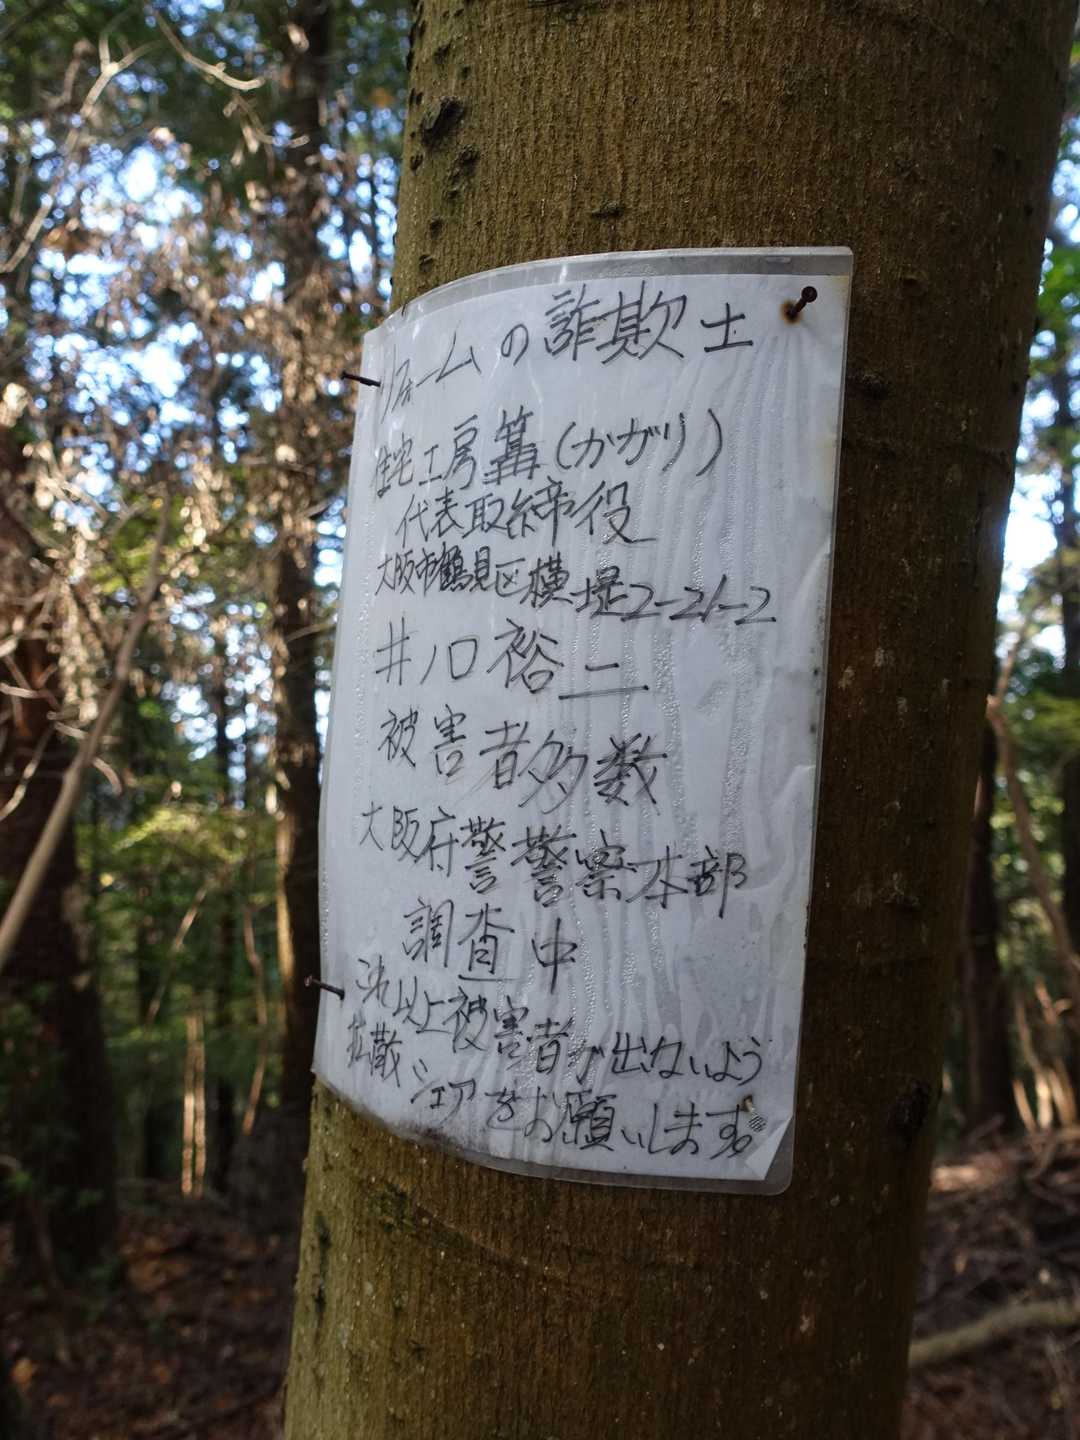 リフォームの詐欺士
住宅工房篝(かがり)
代表取締役
大阪市鶴見区横堤2-21-2
井川口裕二
被害者多数
大阪府警警察本部
調査中
以上被害者が出ないよう
拡散シェアをお願いします。